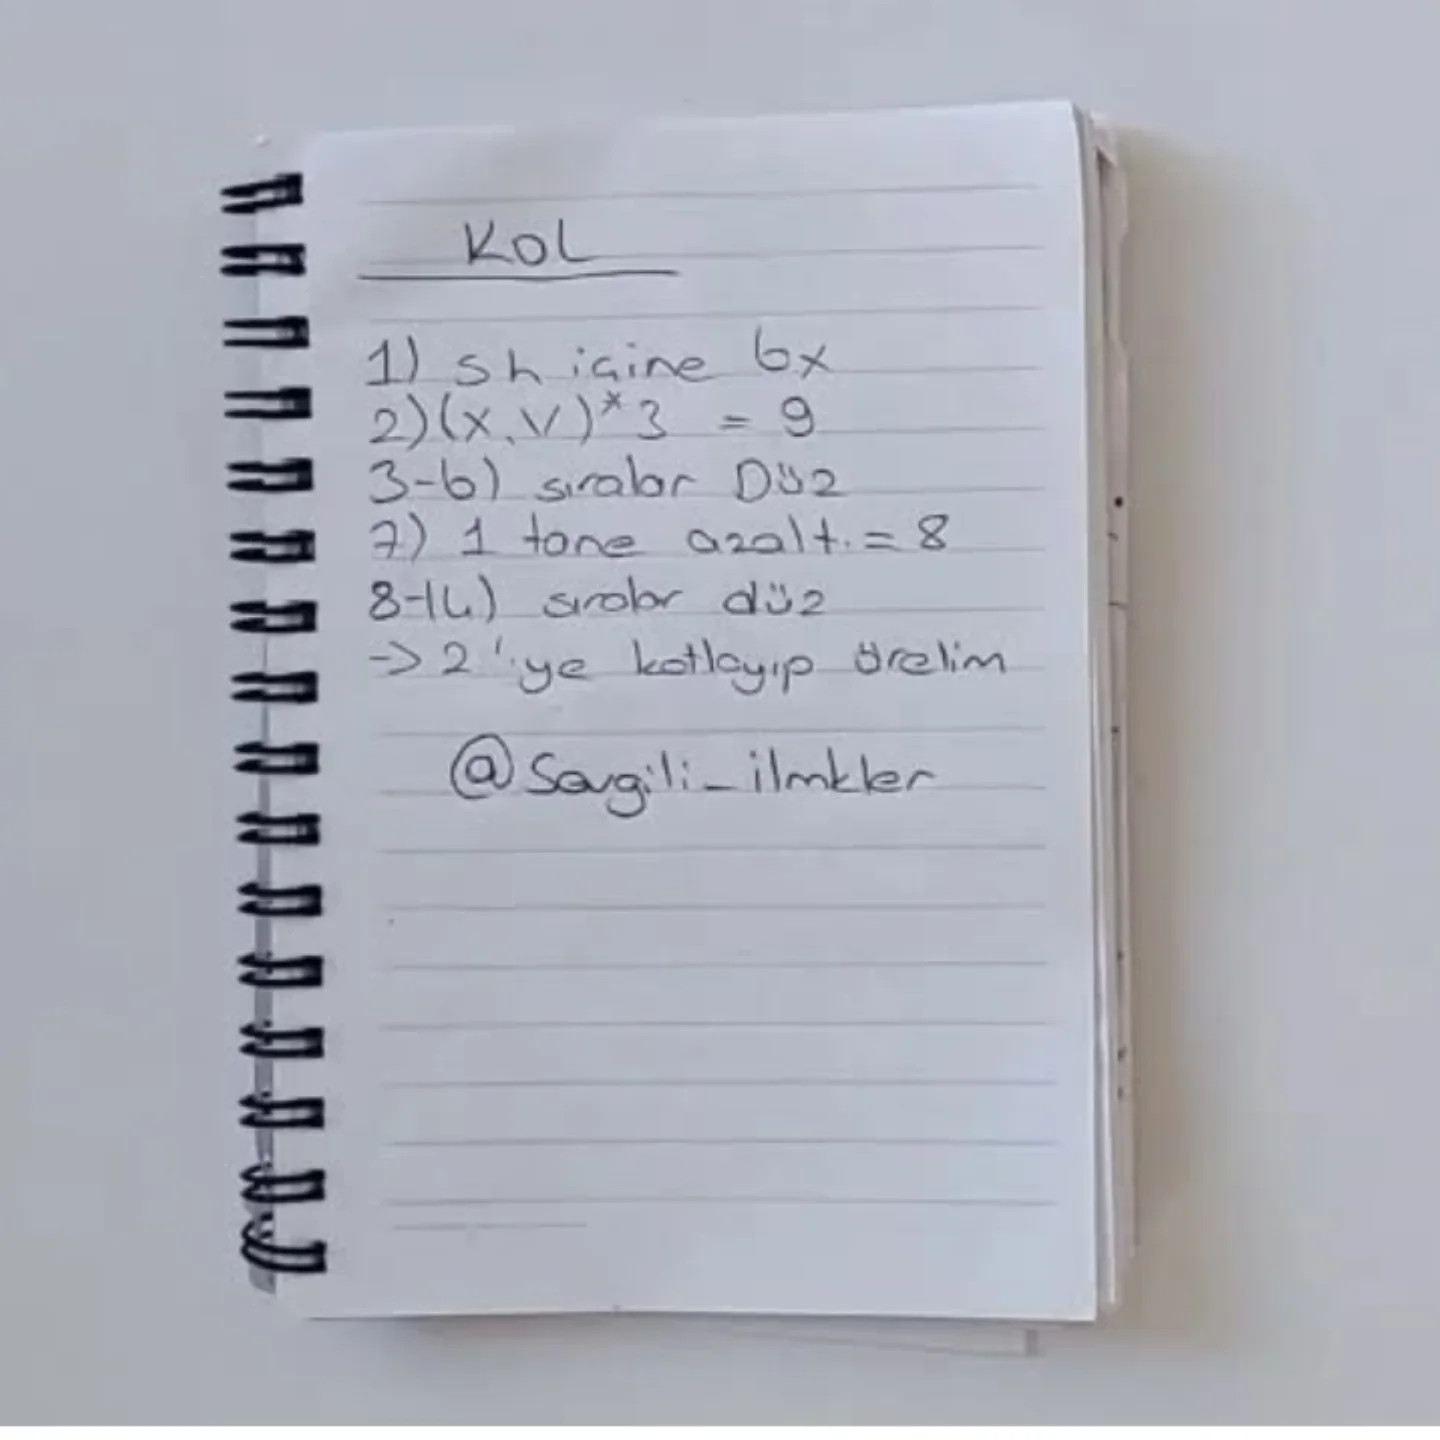 KOL
1) sh içine 6x
2) (x, v)*3 = 9
3-6) sıralar Düz
7) 1 tane azalt. = 8
8-14) sıralar düz
-> 2'ye katlayıp örelim
@Sevgili_ilmkler